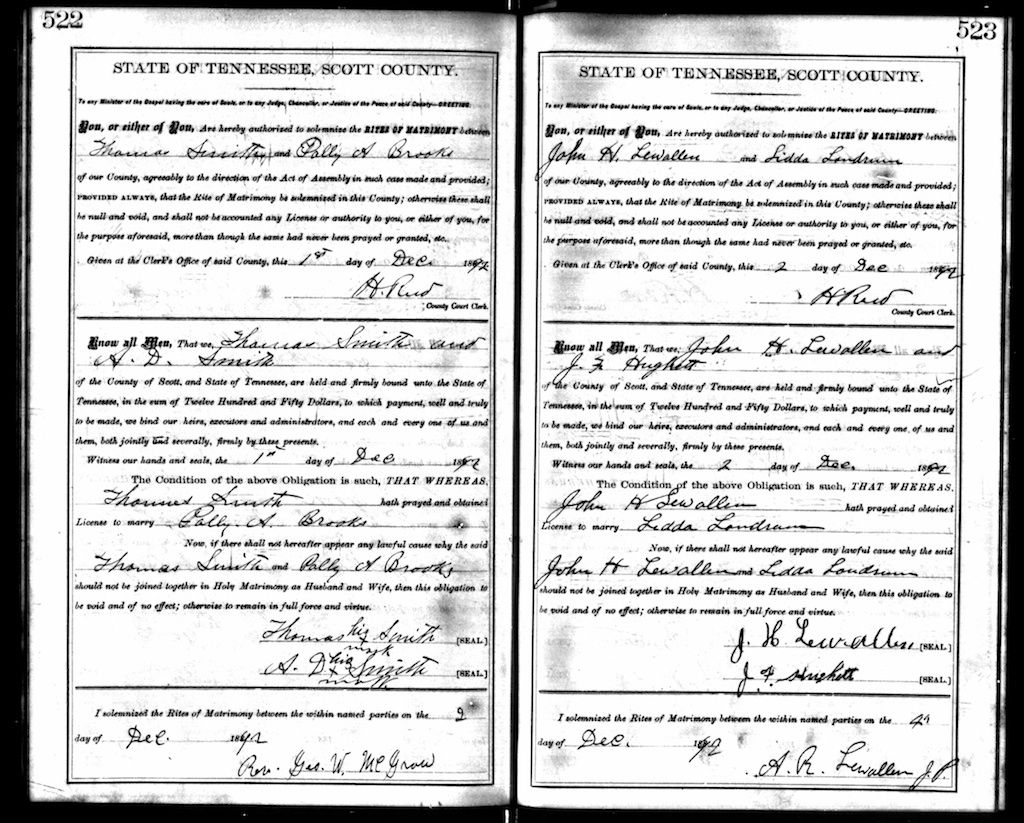 522
STATE OF TENNESSEE, SCOTT COUNTY.
To any Minister of the Gospel having the care of Souls, or to any Judge, Chancellor, or Justice of the Peace of said County—GREETING:
You, or either of You, Are hereby authorized to solemnize the RITES OF MATRIMONY between
Thomas Smith and Polly A Brooks
of our County, agreeably to the direction of the Act of Assembly in such case made and provided;
PROVIDED ALWAYS, that the Rite of Matrimony be solemnized in this County; otherwise these shall
be null and void, and shall not be accounted any License or authority to you, or either of you, for
the purpose aforesaid, more than though the same had never been prayed or granted, etc.
Given at the Clerk's Office of said County, this 1st day of Dec. 1892
H. Reed
County Court Clerk.
Know all Men, That we, Thomas Smith and
A. D. Smith
of the County of Scott, and State of Tennessee, are held and firmly bound unto the State of
Tennessee, in the sum of Twelve Hundred and Fifty Dollars, to which payment, well and truly
to be made, we bind our heirs, executors and administrators, and each and every one of us and
them, both jointly and severally, firmly by these presents.
Witness our hands and seals, the 1st day of Dec 1892
The Condition of the above Obligation is such, THAT WHEREAS,
Thomas Smith hath prayed and obtained
License to marry Polly A. Brooks
Now, if there shall not hereafter appear any lawful cause why the said
Thomas Smith and Polly A Brooks
should not be joined together in Holy Matrimony as Husband and Wife, then this obligation to
be void and of no effect; otherwise to remain in full force and virtue.
Thomas his x mark Smith [SEAL.]
A. D his x mark Smith [SEAL.]
I solemnized the Rites of Matrimony between the within named parties on the 2
day of Dec. 1892
Rev. Geo. W. McGrow
523
STATE OF TENNESSEE, SCOTT COUNTY.
To any Minister of the Gospel having the care of Souls, or to any Judge, Chancellor, or Justice of the Peace of said County—GREETING:
You, or either of You, Are hereby authorized to solemnize the RITES OF MATRIMONY between
John H. Lewallen and Lidda Londrum
of our County, agreeably to the direction of the Act of Assembly in such case made and provided;
PROVIDED ALWAYS, that the Rite of Matrimony be solemnized in this County; otherwise these shall
be null and void, and shall not be accounted any License or authority to you, or either of you, for
the purpose aforesaid, more than though the same had never been prayed or granted, etc.
Given at the Clerk's Office of said County, this 2 day of Dec 1892
H Reed
County Court Clerk.
Know all Men, That we, John H. Lewallen and
J. F Hughett
of the County of Scott, and State of Tennessee, are held and firmly bound unto the State of
Tennessee, in the sum of Twelve Hundred and Fifty Dollars, to which payment, well and truly
to be made, we bind our heirs, executors and administrators, and each and every one of us and
them, both jointly and severally, firmly by these presents.
Witness our hands and seals, the 2 day of Dec. 1892
The Condition of the above Obligation is such, THAT WHEREAS,
John H Lewallen hath prayed and obtained
License to marry Lidda Londrum
Now, if there shall not hereafter appear any lawful cause why the said
John H Lewallen and Lidda Londrum
should not be joined together in Holy Matrimony as Husband and Wife, then this obligation to
be void and of no effect; otherwise to remain in full force and virtue.
J. H. Lewallen [SEAL.]
J F. Hughett [SEAL.]
I solemnized the Rites of Matrimony between the within named parties on the 4
day of Dec. 1892
A. R. Lewallen J. P.